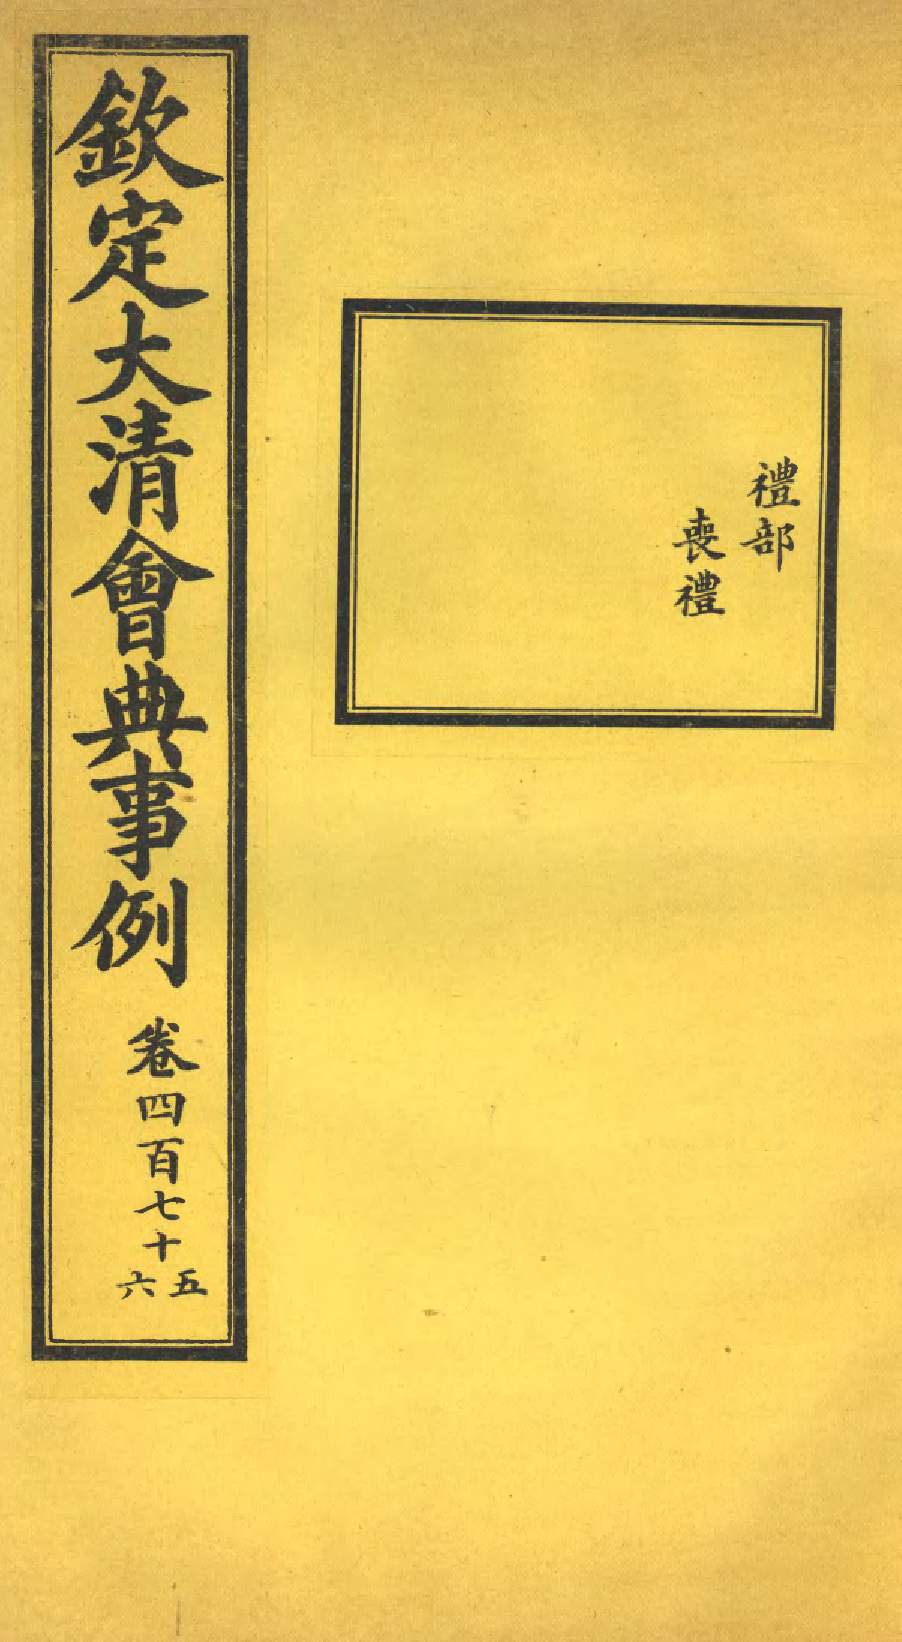 禮部
喪禮
欽定大清會典事例
卷四百七十五
六